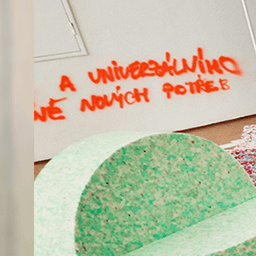 A UNIVERZÁLNÍHO
NÉ NOVÝCH POTŘEB